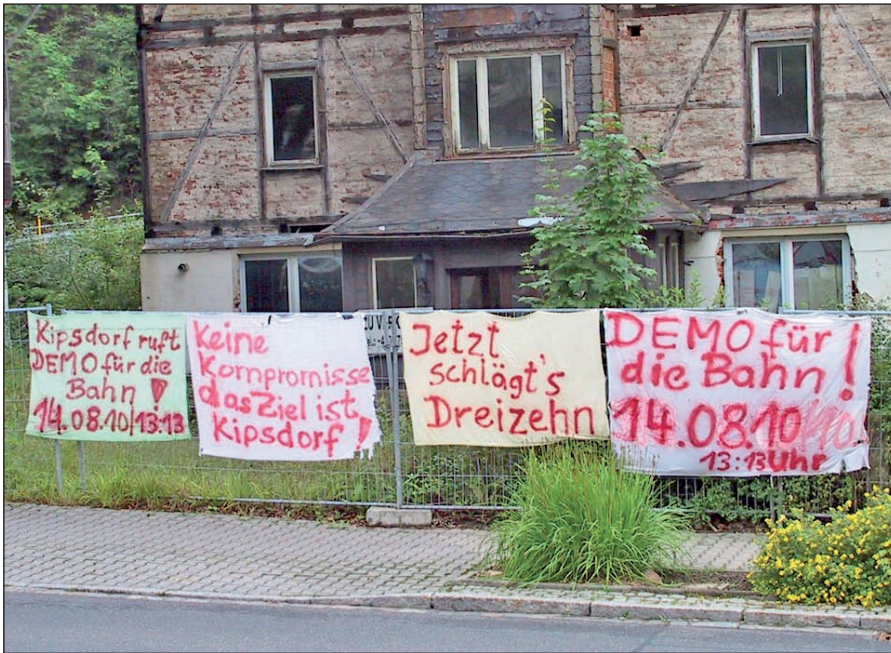 Kipsdorf ruft
DEMO für die
Bahn !
14.08.10/13:13
Keine
Kompromisse
das Ziel ist
Kipsdorf !
Jetzt
schlägt's
Dreizehn
DEMO für
die Bahn !
14.08.10
13:13 Uhr